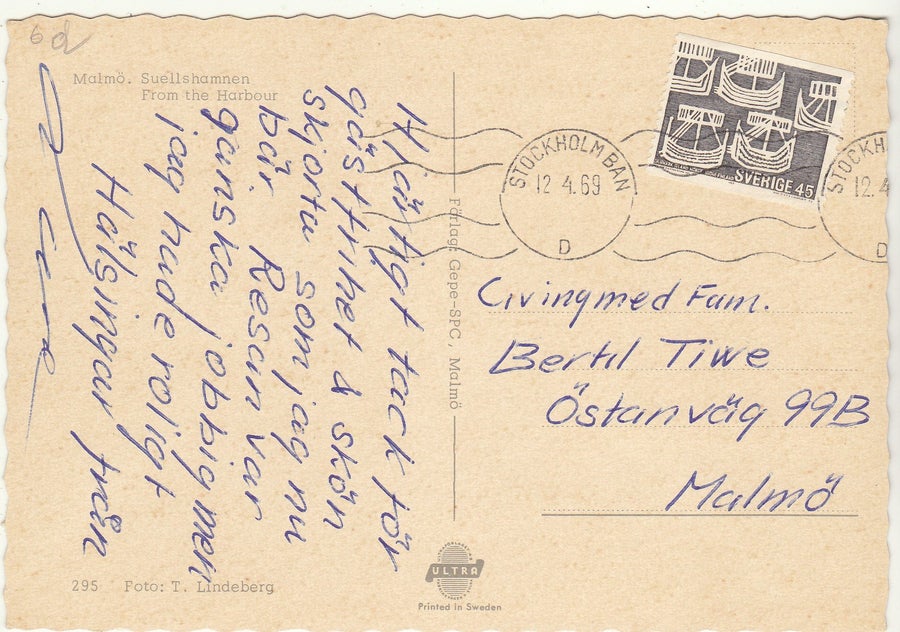 6d
Malmö. Suellshamnen
From the Harbour
Hjärtigt tack för
gästfrihet & skön
skjorta som jag nu
bär. Resan var
ganska jobbig men
jag hade roligt
Hälsingar från
295 Foto: T. Lindeberg
Förlag: Gepe-SPC, Malmö
ULTRA
Printed in Sweden
STOCKHOLM BAN
12 4.69
D
STOCKH
12.4
D
SVERIGE 45
Civingmed Fam.
Bertil Tiwe
Östanväg 99B
Malmö